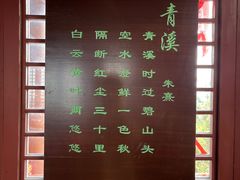 青溪
朱熹
青溪时过碧山头
空水澄鲜一色秋
隔断红尘三十里
白云黄叶两悠悠